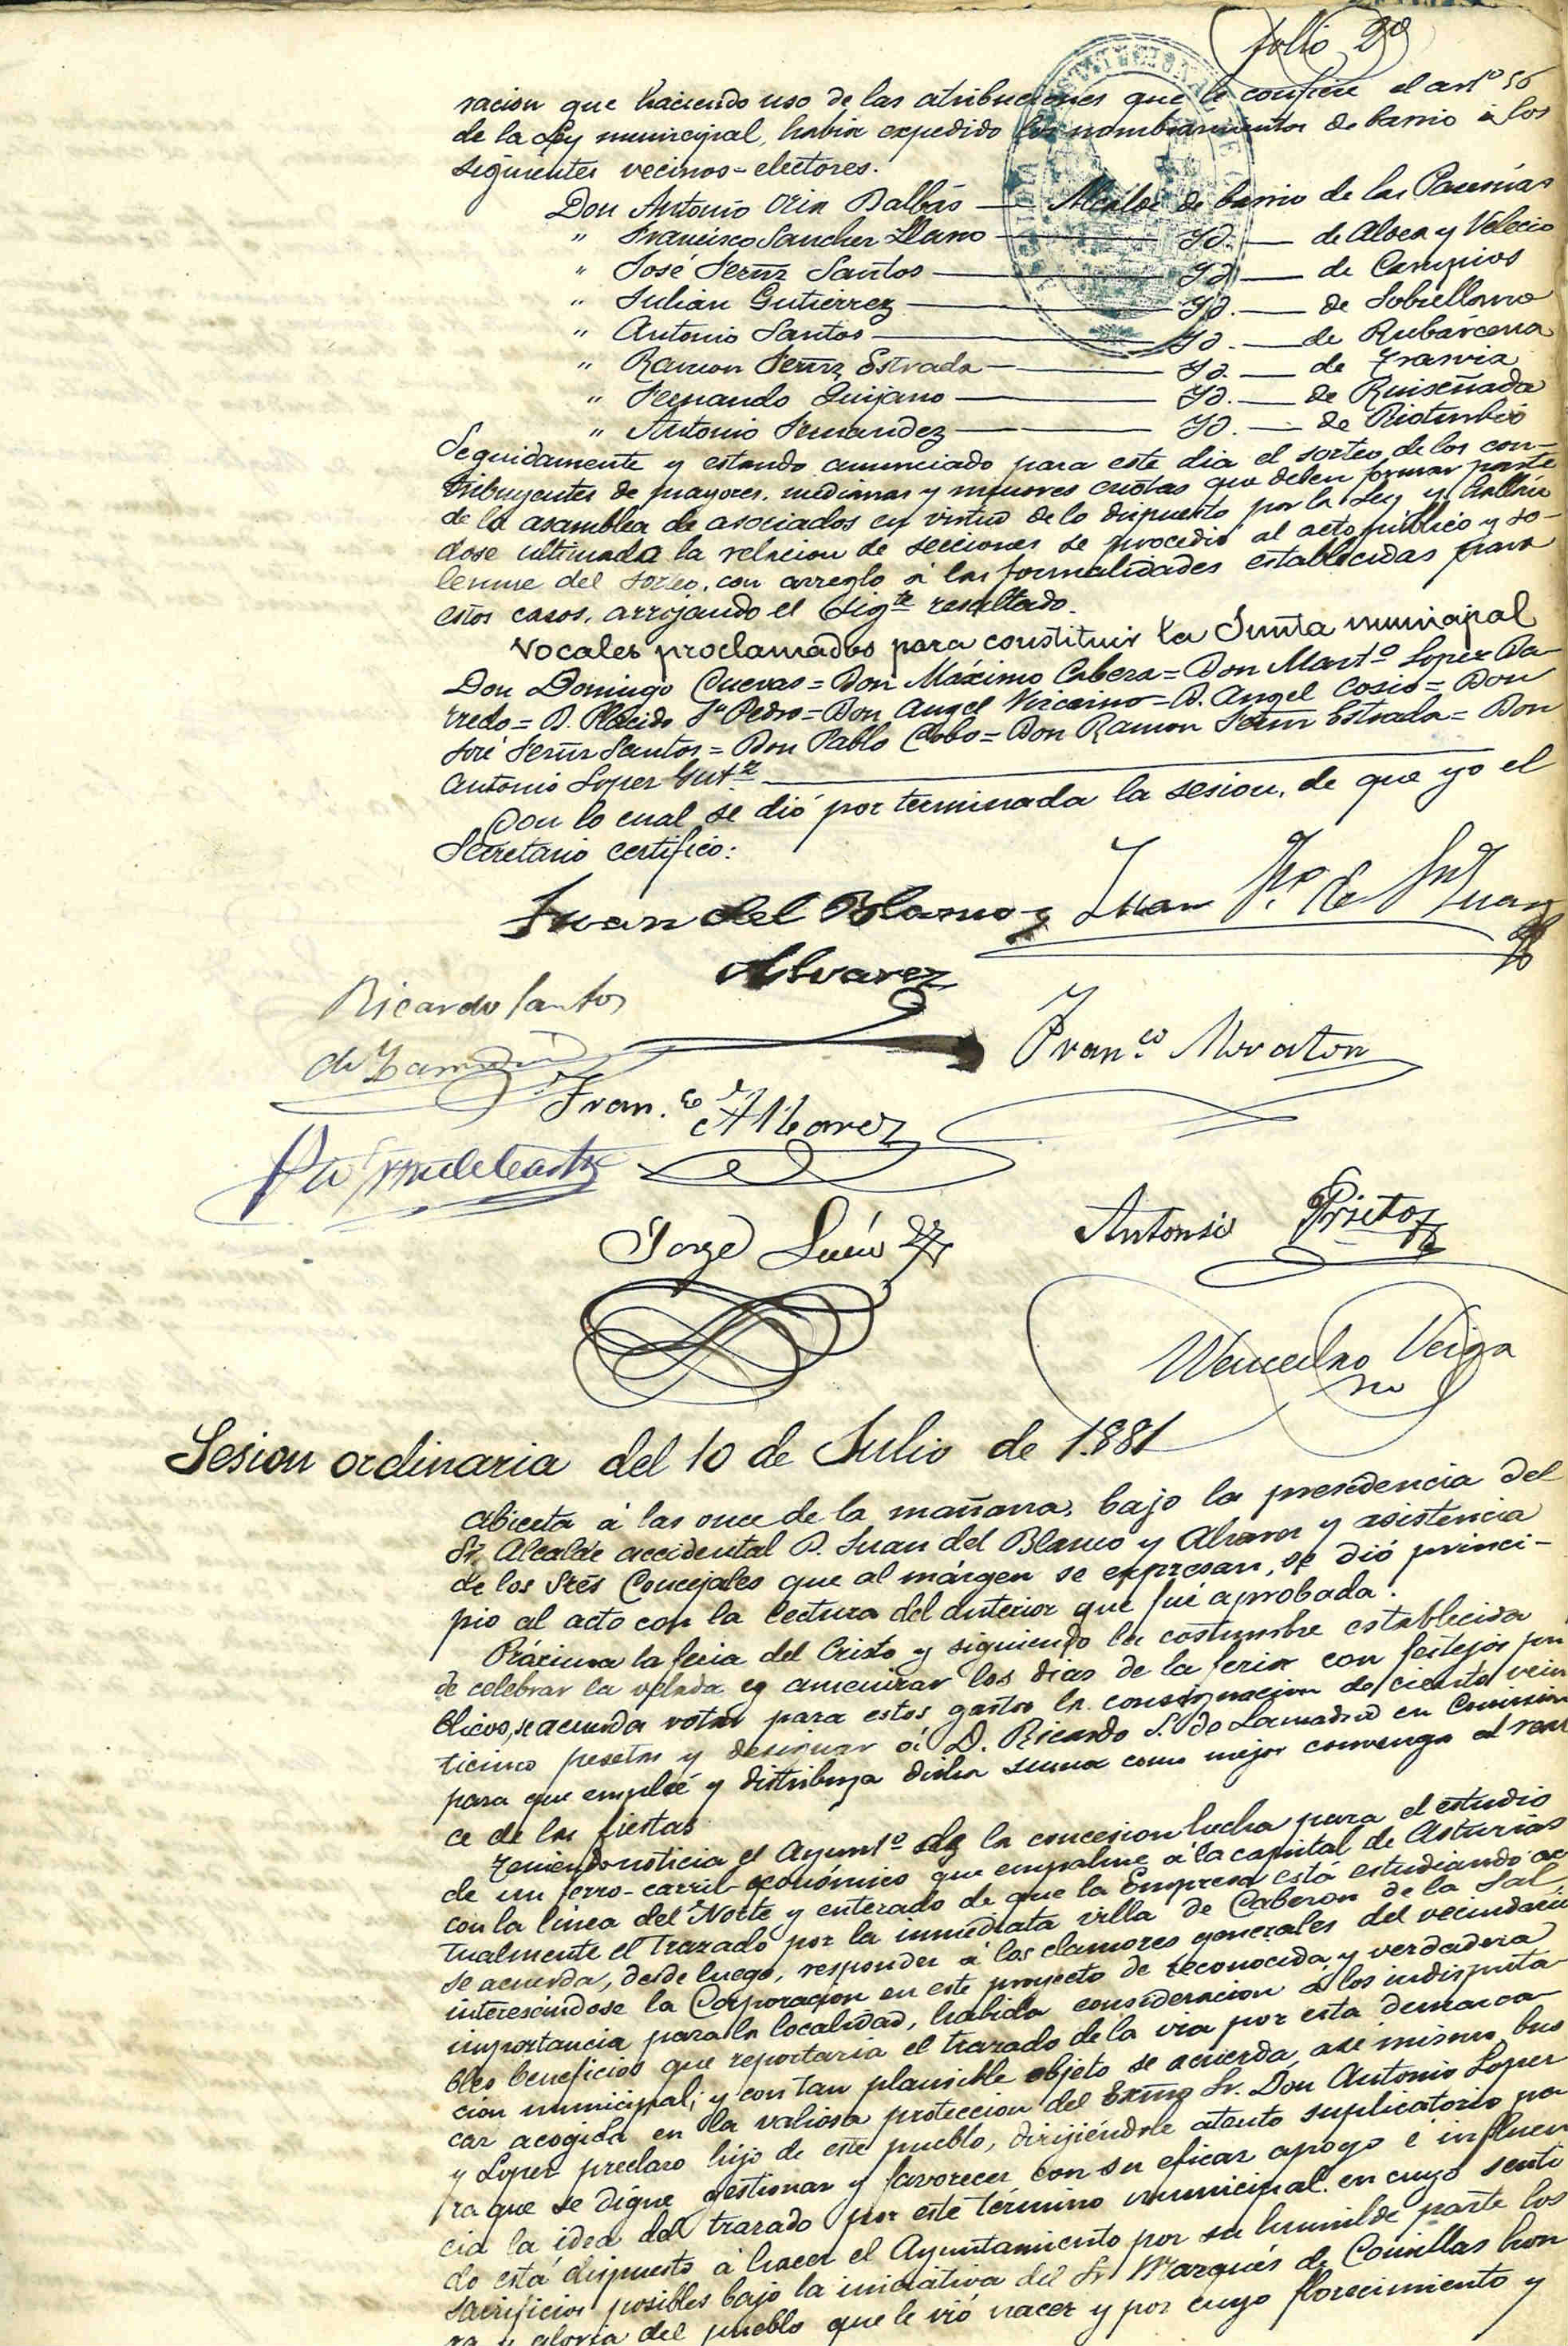 folio 20
racion que haciendo uso de las atribuciones que le confiere el artº 56
de la ley municipal, habia expedido los nombramientos de barrio á los
siguientes vecinos-electores.
Don Antonio Balbás — Alcalde de barrio de las
" Francisco Sanchez Llano — Yd. — de Alvea y Velecio
" José Fernz Santos — Yd — de Campios
" Julian Gutierrez — Yd. — de Sobrellano
" Antonio Santos — Yd. — de Rubárcena
" Ramon Fernz Estrada — Yd. — de Trasvia
" Fernando Quijano — Yd. — de Ruiseñada
" Antonio Fernandez — Yd. — de Rioturbió
Seguidamente y estando anunciado para este dia el sorteo de los con-
tribuyentes de mayores, medianas y menores cuotas que deben formar parte
de la asamblea de asociados en virtud de lo dispuesto por la Ley y hallán
dose ultimada la relacion de secciones se procedió al acto público y so-
lemne del sorteo, con arreglo á las formalidades establecidas para
estos casos, arrojando el sigte resultado.
Vocales proclamados para constituir la Junta municipal
Don Domingo Cuevas = Don Máximo Cabeza = Don Martº Lopez Va-
rredo = D. Plácido Sn Pedro = Don Angel Vizcaino = D. Angel Cosio = Don
José Fernz Santos = Don Pablo Cobo = Don Ramon Fernz Estrada = Don
Antonio Lopez Gutz
Con lo cual se dió por terminada la sesion, de que yo el
Secretario certifico:
Juan del Blanco y Juan de Sn Juan
Alvarez
Ricardo Santos
de Franco Moraton
Franco Albarez
Jorge Antonio Prieto
Wenceslao Veiga
Sesion ordinaria del 10 de Julio de 1.881
Abierta á las once de la mañana, bajo la presidencia del
Sr. Alcalde accidental D. Juan del Blanco y Alvarez y asistencia
de los Sres Concejales que al márgen se expresan, se dió princi-
pio al acto con la lectura del anterior que fué aprobada.
Próxima la feria del Cristo y siguiendo la costumbre establecida
de celebrar la velada y amenizar los dias de la feria con festejos pú
blicos, se acuerda votar para estos gastos la consignacion de ciento vein
ticinco pesetas y designar á D. Ricardo S. de Lamadrid en Comision
para que empleé y distribuya dicha suma como mejor convenga al real
ce de las fiestas
Teniendo noticia el Ayuntº de la concesion hecha para el estudio
de un ferro-carril económico que empalme á la capital de Asturias
con la linea del Norte y enterado de que la Empresa está estudiando ac
tualmente el trazado por la inmediata villa de Cabezon de la Sal,
se acuerda, desde luego, responder á los clamores generales del vecindario
interesándose la Corporacion en este proyecto de reconocida y verdadera
importancia para la localidad, habida consideracion á los indisputa
bles beneficios que reportaria el trazado de la via por esta demarca-
cion municipal; y con tan plausible objeto se acuerda asi mismo bus
car acogida en la valiosa proteccion del Exmo Sr. Don Antonio Lopez
y Lopez preclaro hijo de este pueblo, dirijiéndole atento suplicatorio pa
ra que se digne gestionar y favorecer con su eficaz apoyo é influen
cia la idea del trazado por este término municipal. en cuyo senti
do está dispuesto á hacer el Ayuntamiento por su humilde parte los
sacrificios posibles bajo la iniciativa del Sr Marqués de Comillas hon
ra y gloria del pueblo que le vió nacer y por cuyo florecimiento y